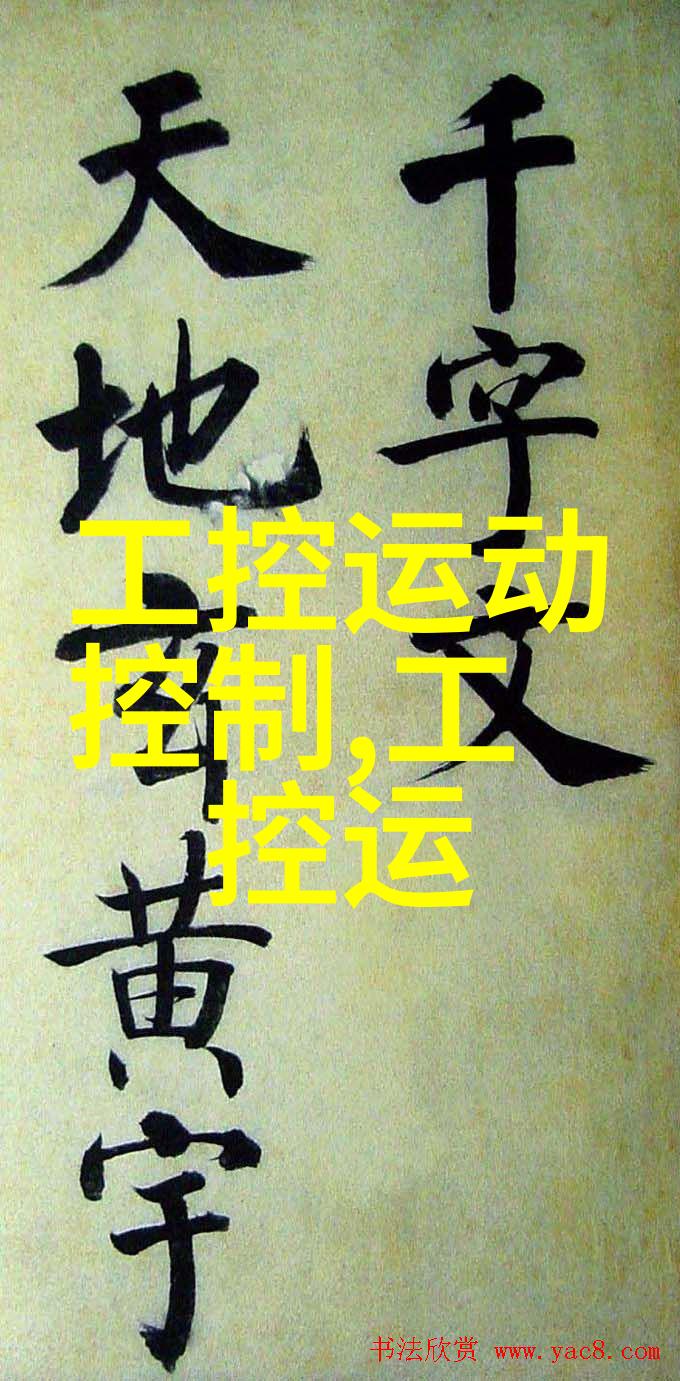 千字文
天地黄宇
工控运动
控制,工
控运
书法欣赏 www.yac8.com